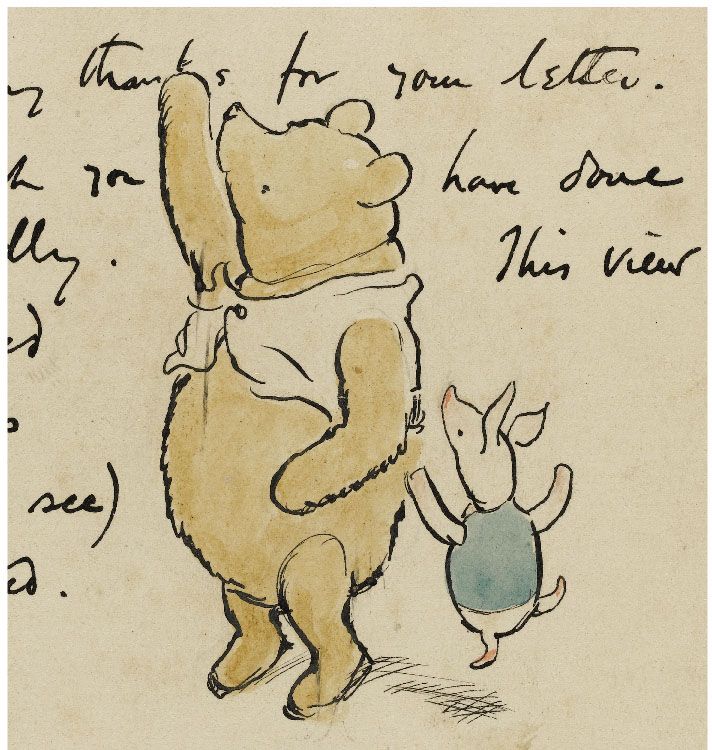 thanks for your letter.
you have done
This view
see)